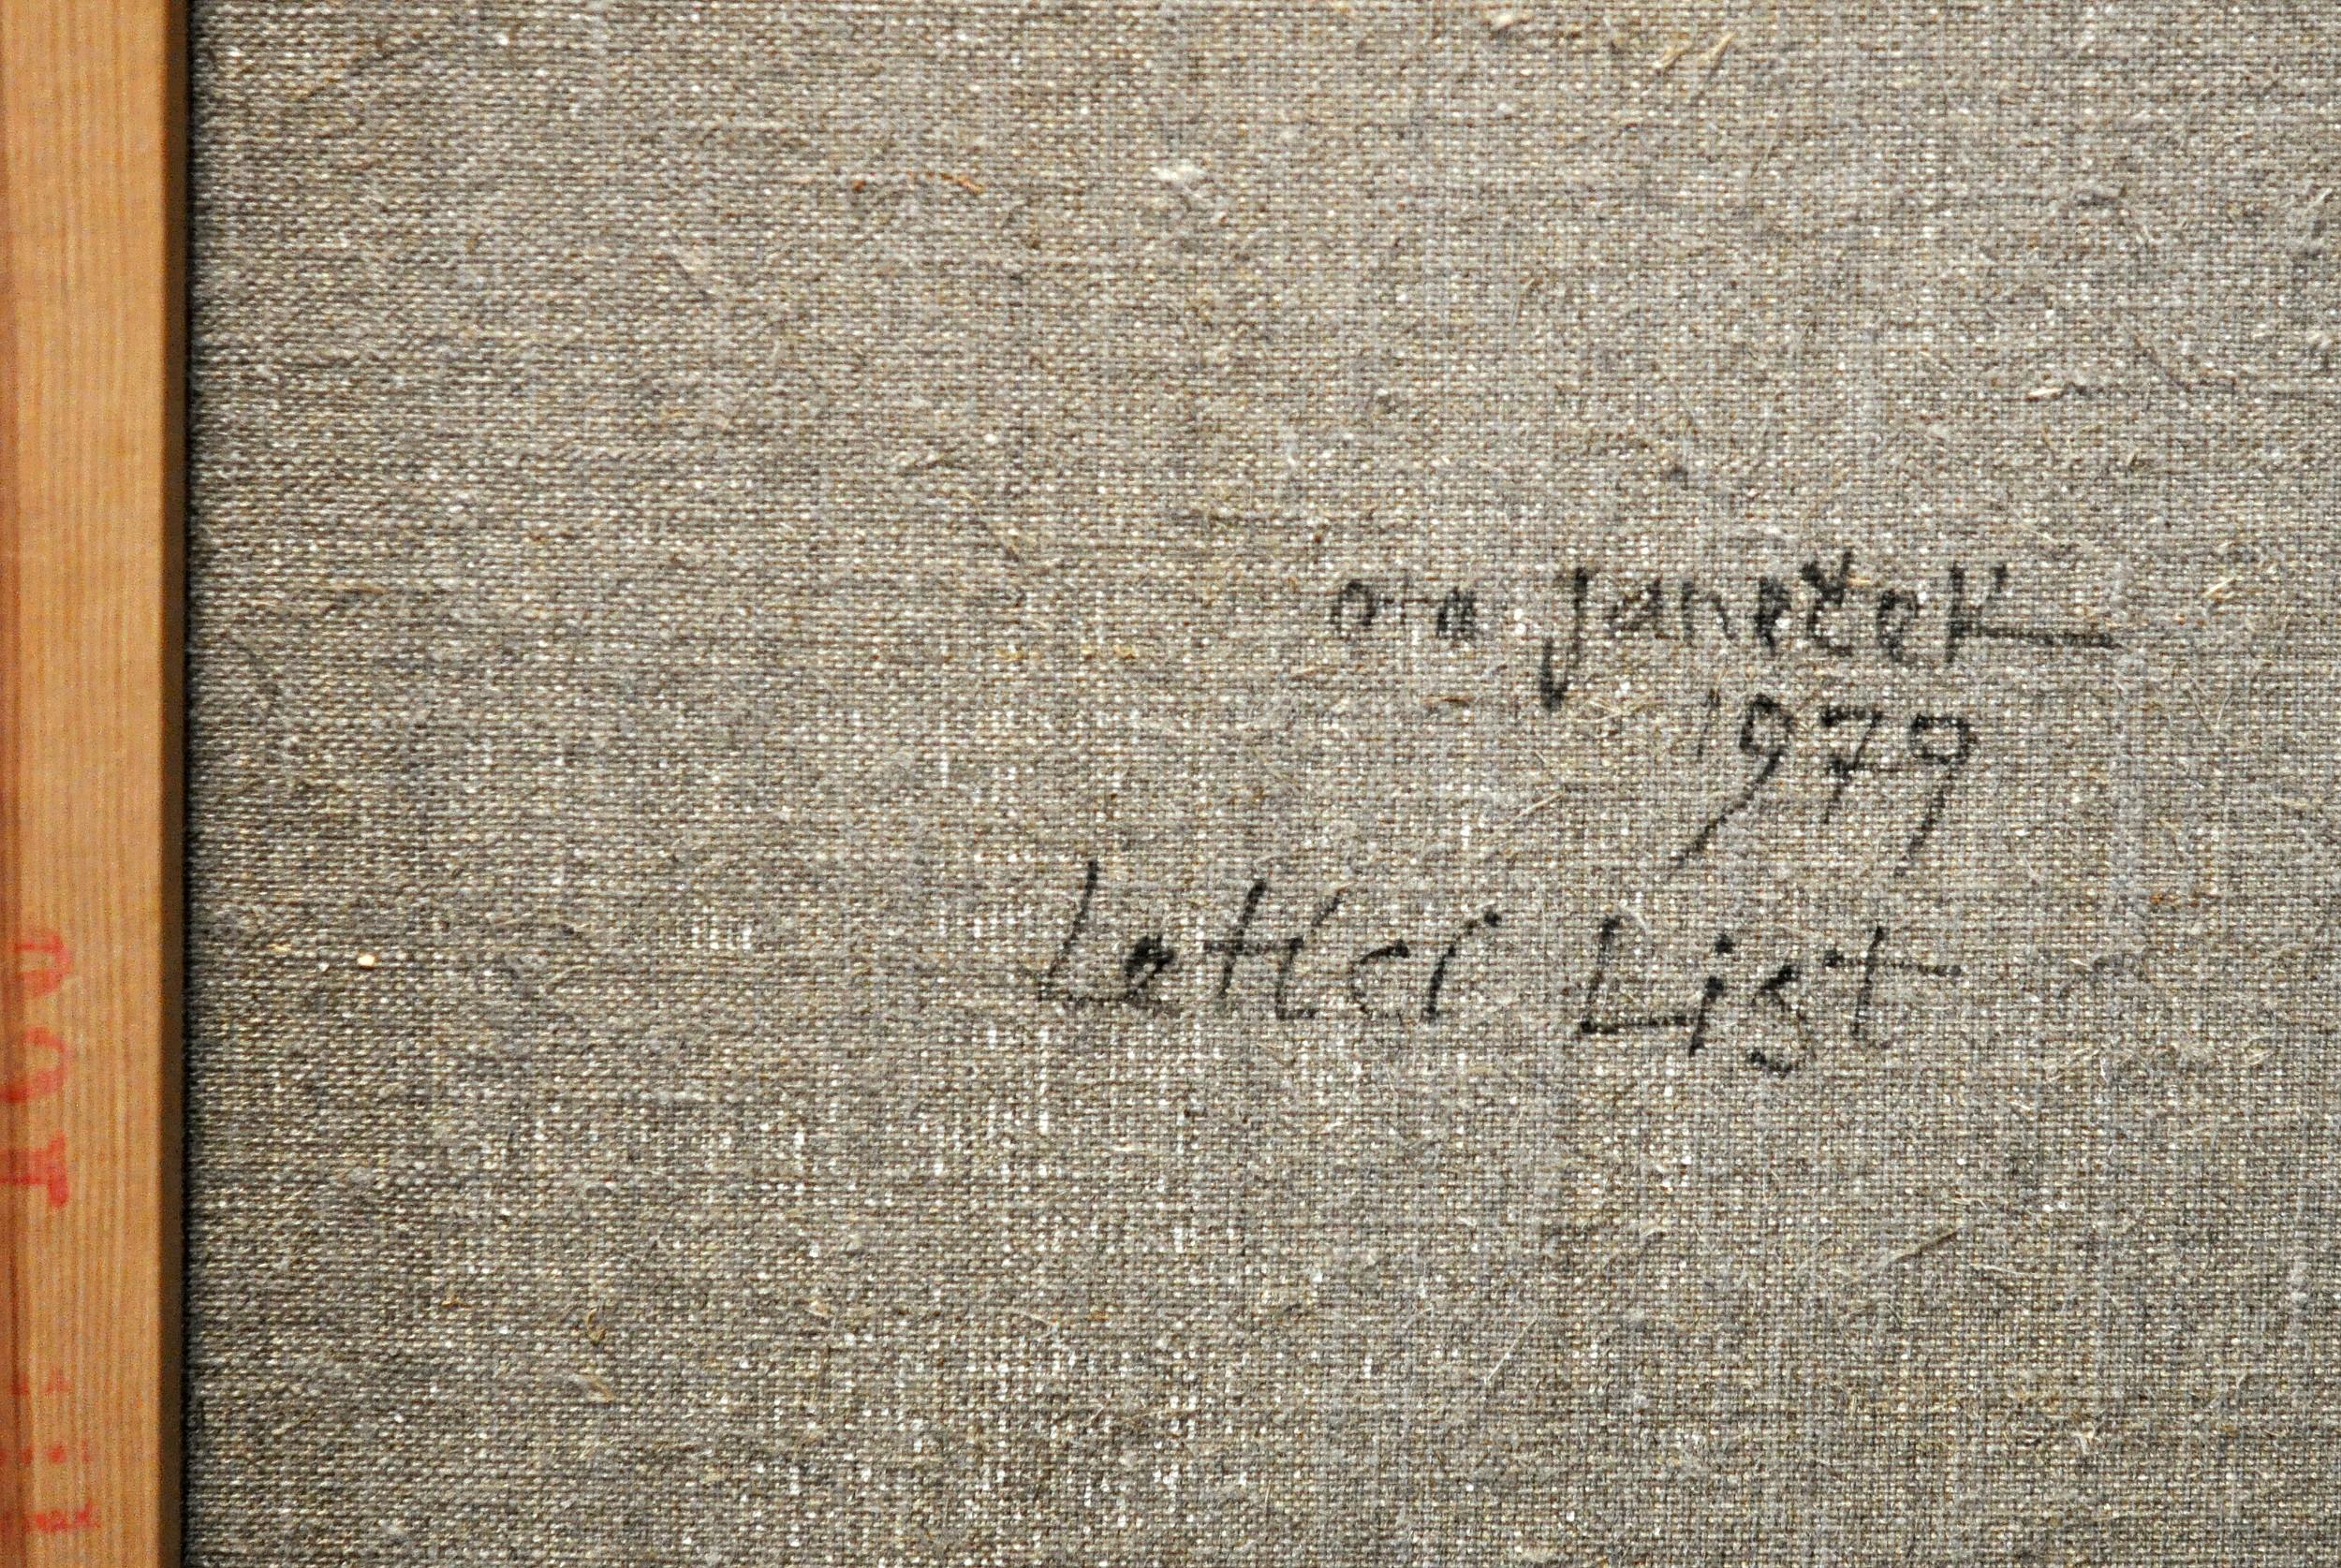 ota janeček
1979
Letter List
100